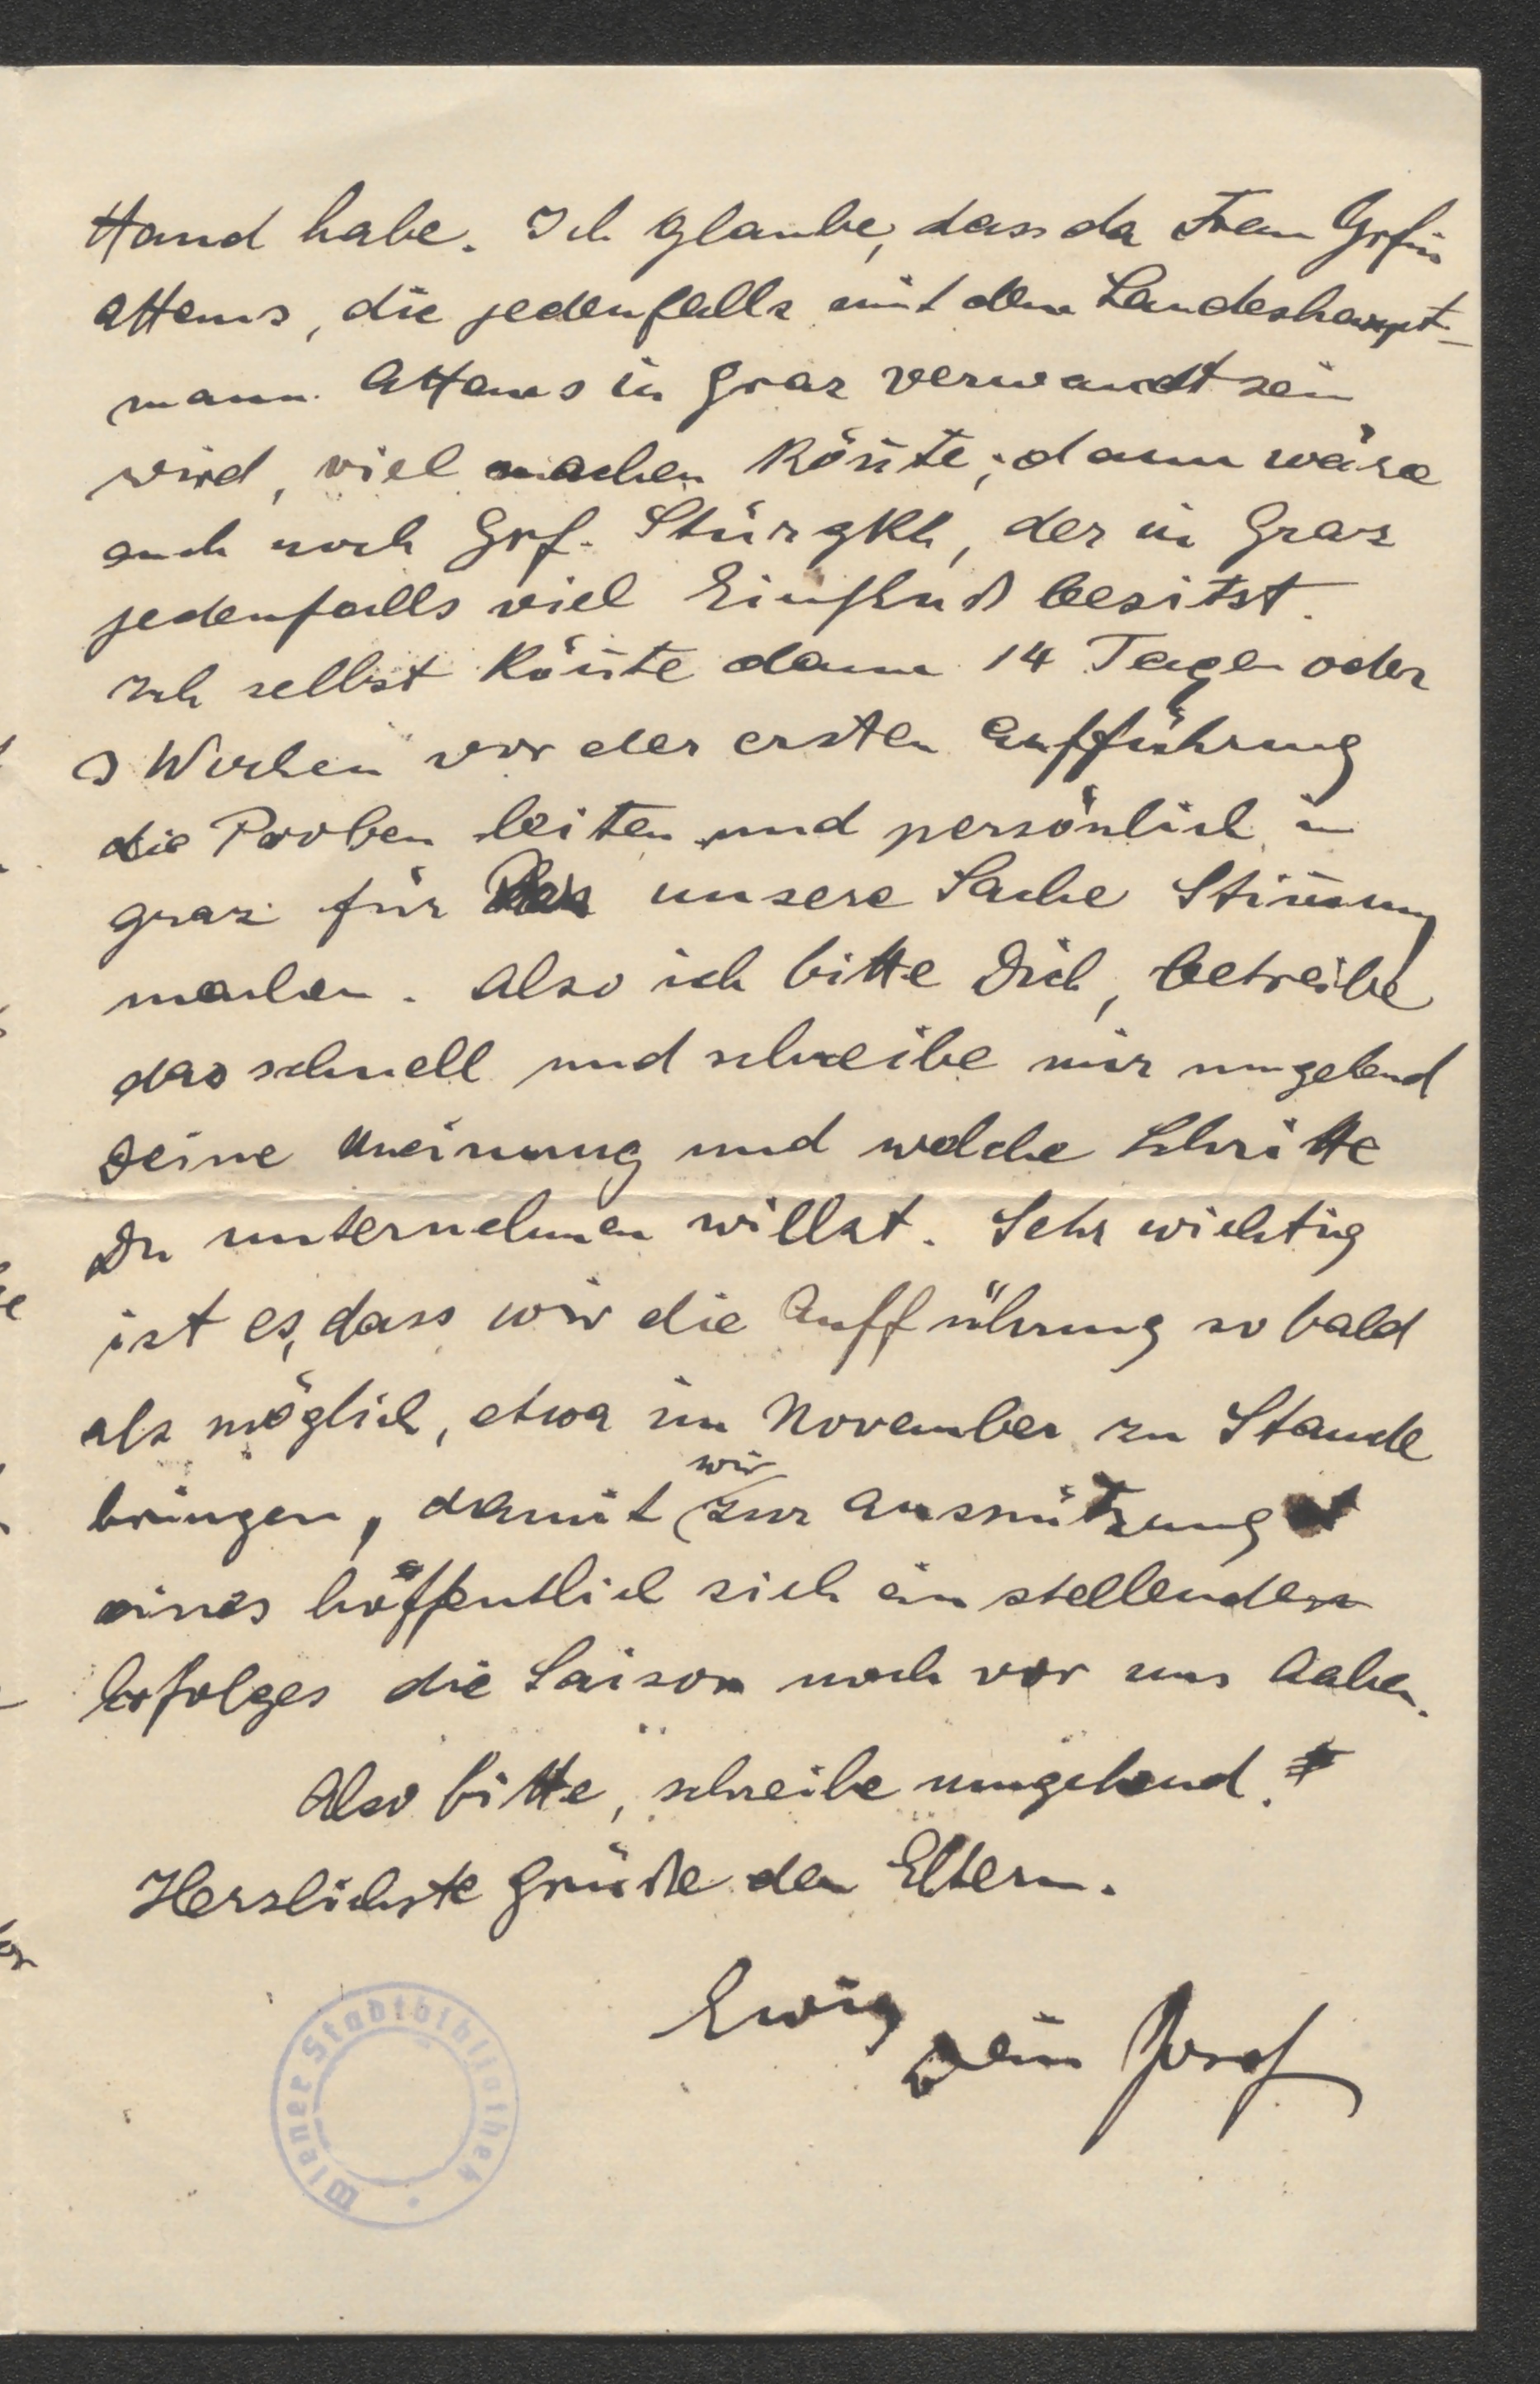 Hand habe. Ich glaube, dass da Frau Grfin
Attems, die jedenfalls mit dem Landeshaupt-
mann Attems in Graz verwandt sein
wird, viel machen kön̄te; dann wäre
auch noch Grf. Stürgkh, der in Graz
jedenfalls viel Einfluß besitzt.
Ich selbst kön̄te dann 14 Tage oder
3 Wochen vor der ersten Aufführung
die Proben leiten und persönlich in
Graz für unsere Sache Stim̄ung
machen. Also ich bitte Dich, betreibe
das schnell und schreibe mir umgehend
Deine Meinung und welche Schritte
Du unternehmen willst. Sehr wichtig
ist es, dass wir die Aufführung so bald
als möglich, etwa im November zu Stande
bringen, damit wir zur Ausnützung
eines hoffentlich sich einstellenden
Erfolges die Saison noch vor uns haben.
Also bitte, schreibe umgehend.
Herzlichste Grüße den Eltern.
Ewig
Dein Josef
Wiener Stadtbibliothek